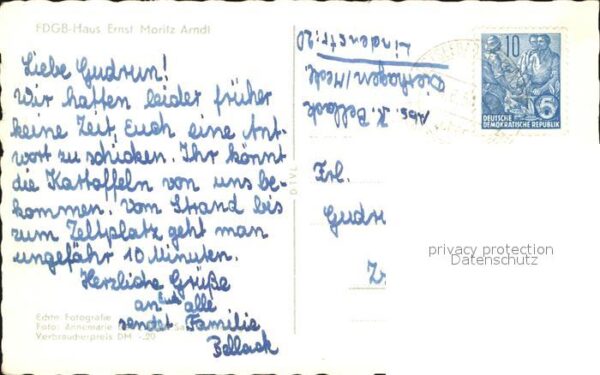 FDGB-Haus Ernst Moritz Arndt
Liebe Gudrun!
Wir hatten leider früher
keine Zeit, Euch eine Ant-
wort zu schicken. Ihr könnt
die Kartoffeln von uns be-
kommen. Vom Strand bis
zum Zeltplatz geht man
ungefähr 10 Minuten.
Herzliche Grüße
an Euch alle
sendet Familie
Bellack
Echte Fotografie
Foto: Annemarie
Verbraucherpreis DM -.20
Abs. K. Bellack
Dierhagen/Meckl
Lindenstr. 20
10
5
DEUTSCHE
DEMOKRATISCHE REPUBLIK
Frl.
Gudr
privacy protection
Datenschutz